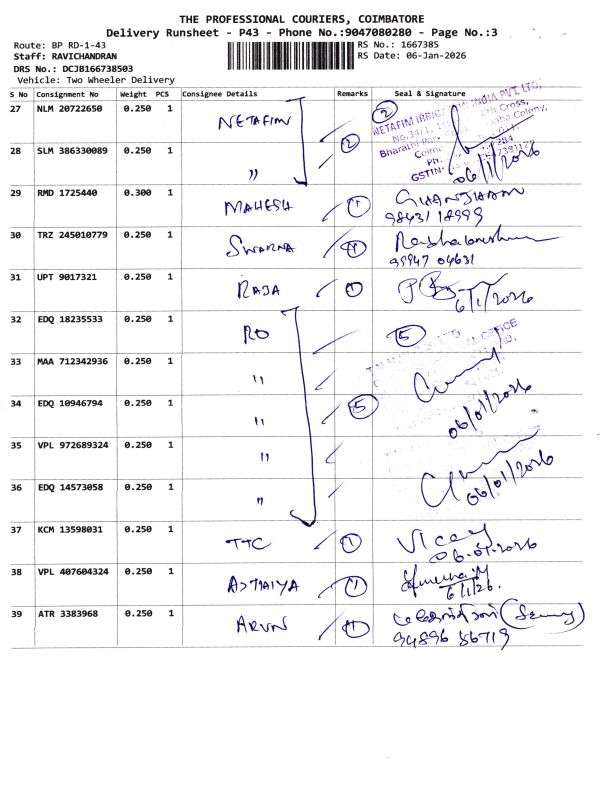 THE PROFESSIONAL COURIERS, COIMBATORE
Delivery Runsheet - P43 - Phone No.:9047080280 - Page No.:3
Route: BP RD-1-43
RS No.: 1667385
Staff: RAVICHANDRAN
RS Date: 06-Jan-2026
DRS No.: DCJB166738503
Vehicle: Two Wheeler Delivery
S No Consignment No Weight PCS Consignee Details Remarks Seal & Signature
27 NLM 20722650 0.250 1 NETAFIM 2 2
NETAFIM INDIA PVT. LTD.
Cross,
Colony,
GSTIN
28 SLM 386330089 0.250 1 "
06/1/2026
29 RMD 1725440 0.300 1 MAHESH 1
98431 18999
30 TRZ 245010779 0.250 1 SWARNA 1
99947 04631
31 UPT 9017321 0.250 1 RAJA 1
6/1/2026
32 EDQ 18235533 0.250 1 RO 5
OFFICE
33 MAA 712342936 0.250 1 "
34 EDQ 10946794 0.250 1 " 5
06/01/2026
35 VPL 972689324 0.250 1 "
36 EDQ 14573058 0.250 1 "
06/01/2026
37 KCM 13598031 0.250 1 TTC 1
06.01.2026
38 VPL 407604324 0.250 1 1
6/1/26.
39 ATR 3383968 0.250 1 ARUN 1
94896 56719